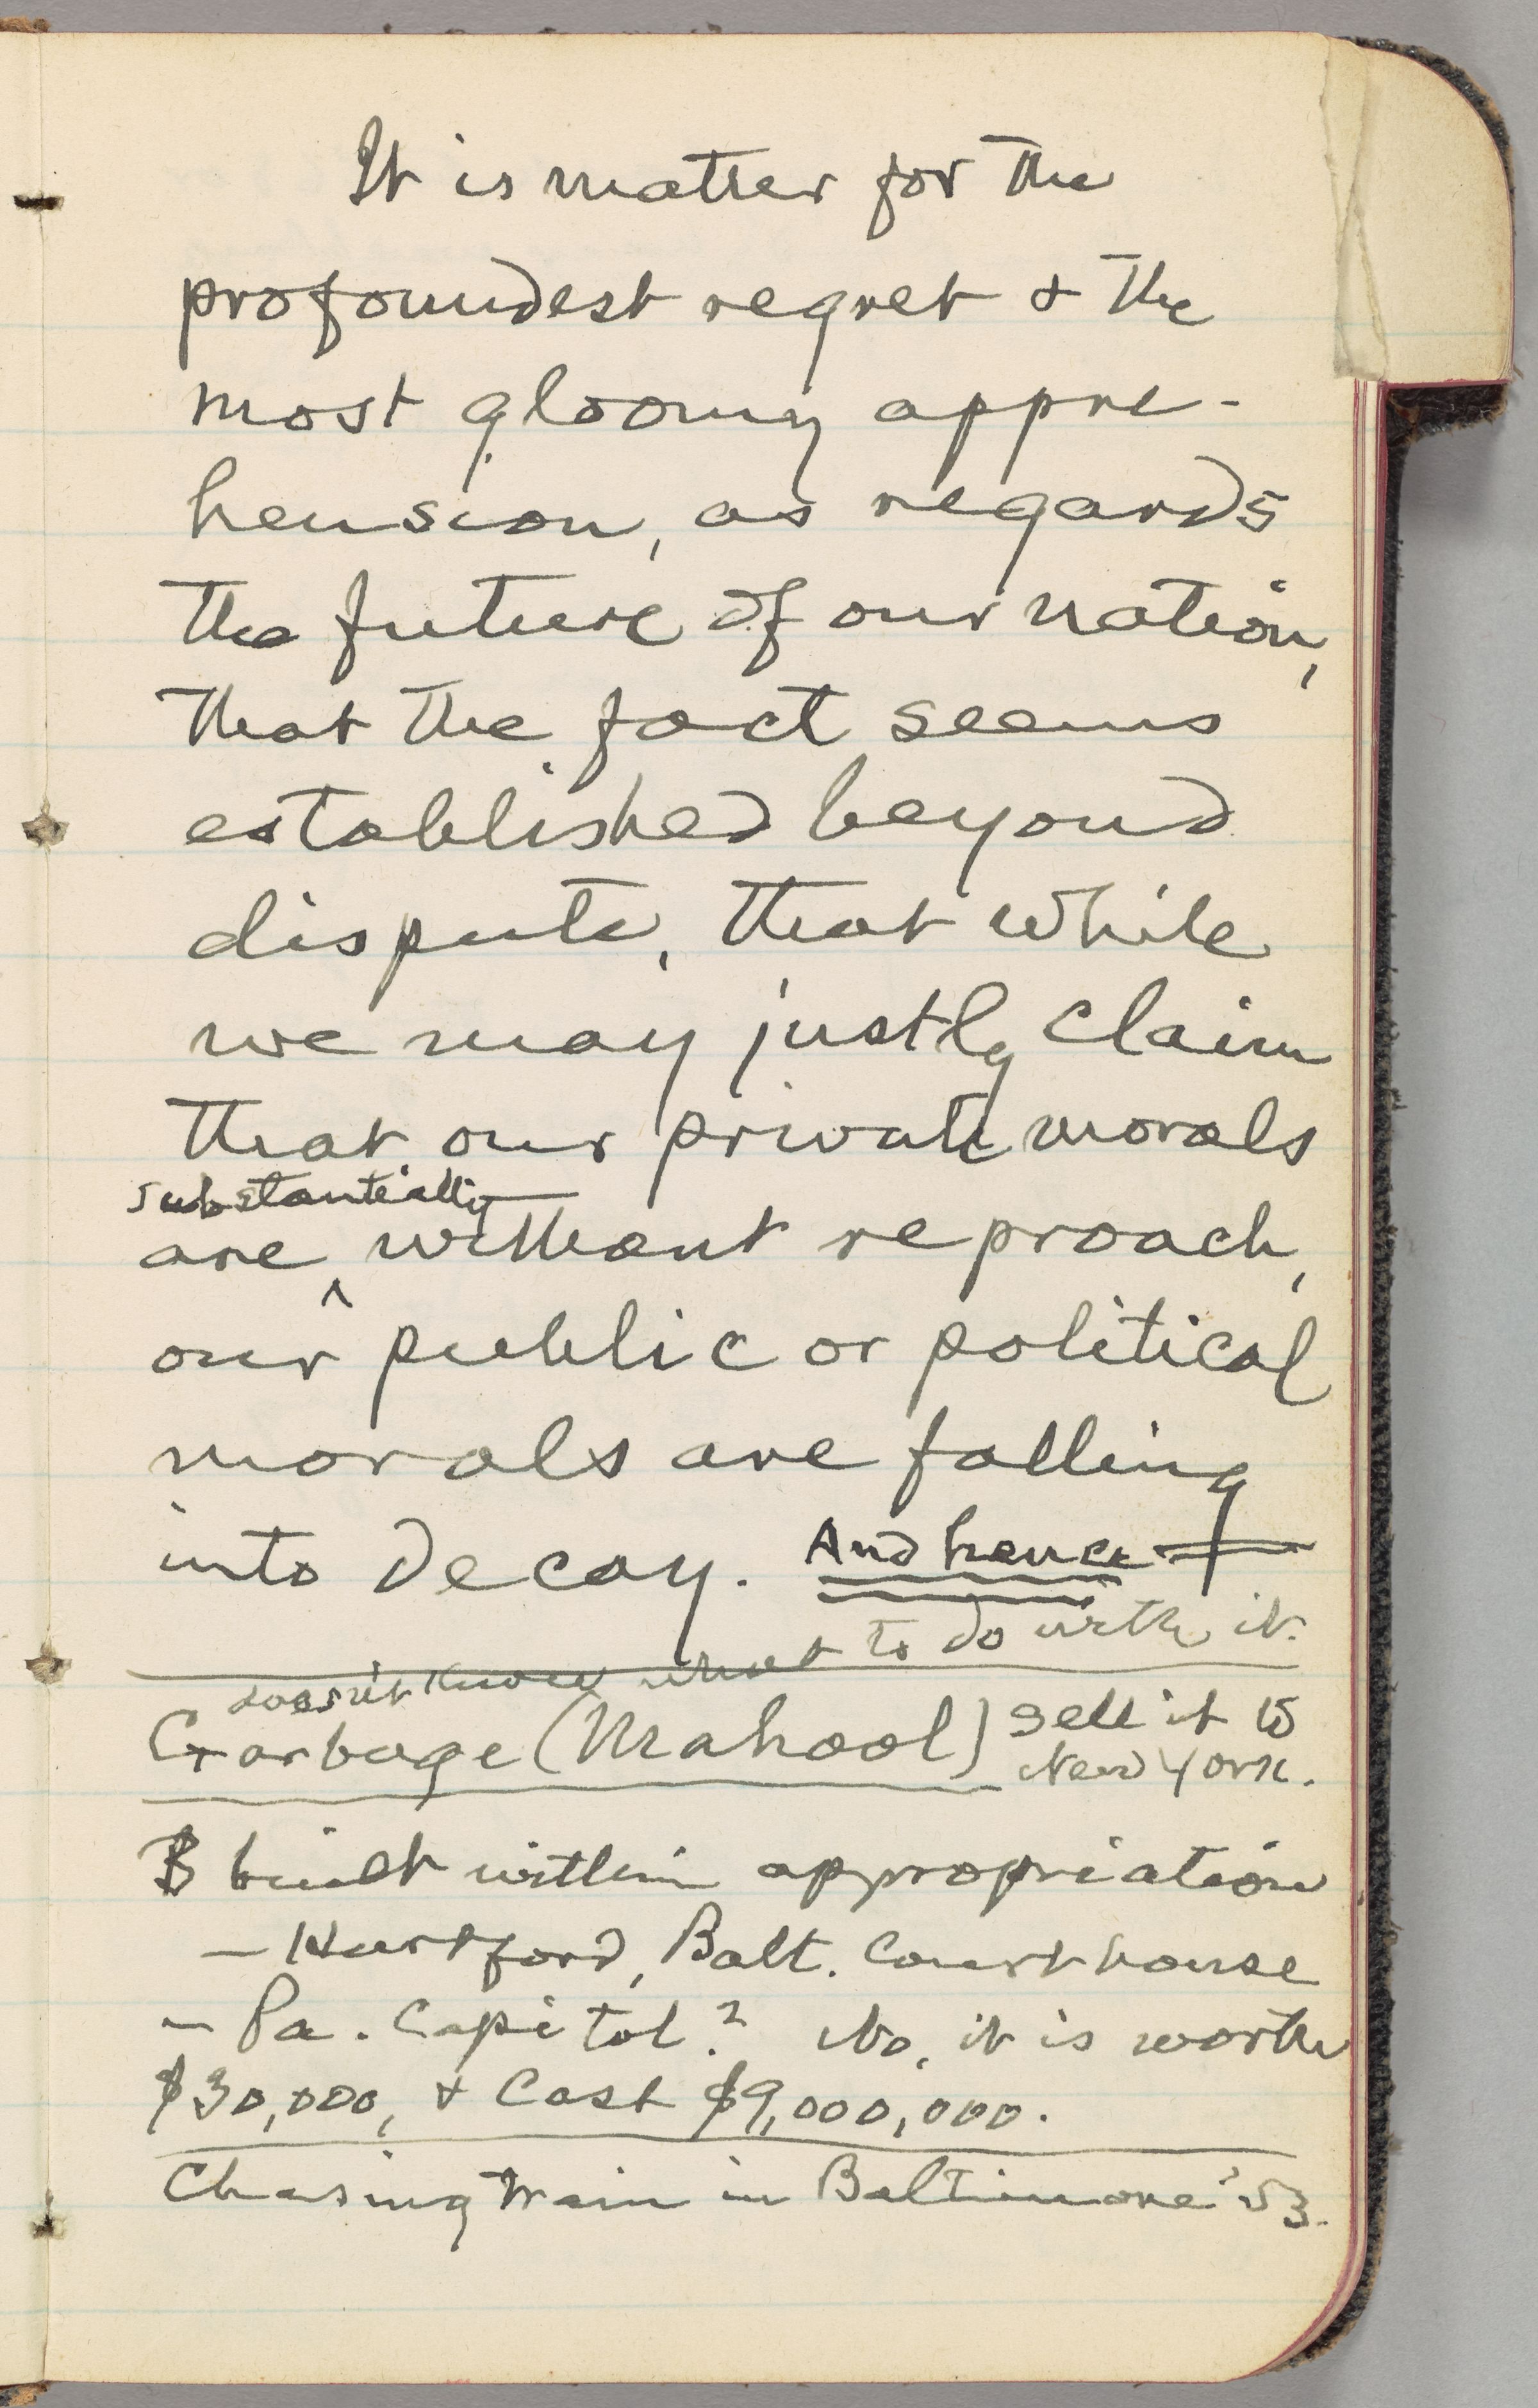 It is matter for the
profoundest regret & the
most gloomy appre-
hension, as regards
the future of our nation,
that the fact seems
established beyond
dispute, that while
we may justly claim
that our private morals
substantially
are ^ without reproach,
our public or political
morals are falling
into decay. And hence —
doesn't know what to do with it.
Garbage (Mahool) sell it to
New York.
B built within appropriation
— Hartford, Balt. Court house
— Pa. Capitol? No, it is worth
$30,000, & Cost $9,000,000.
Chasing train in Baltimore '53.